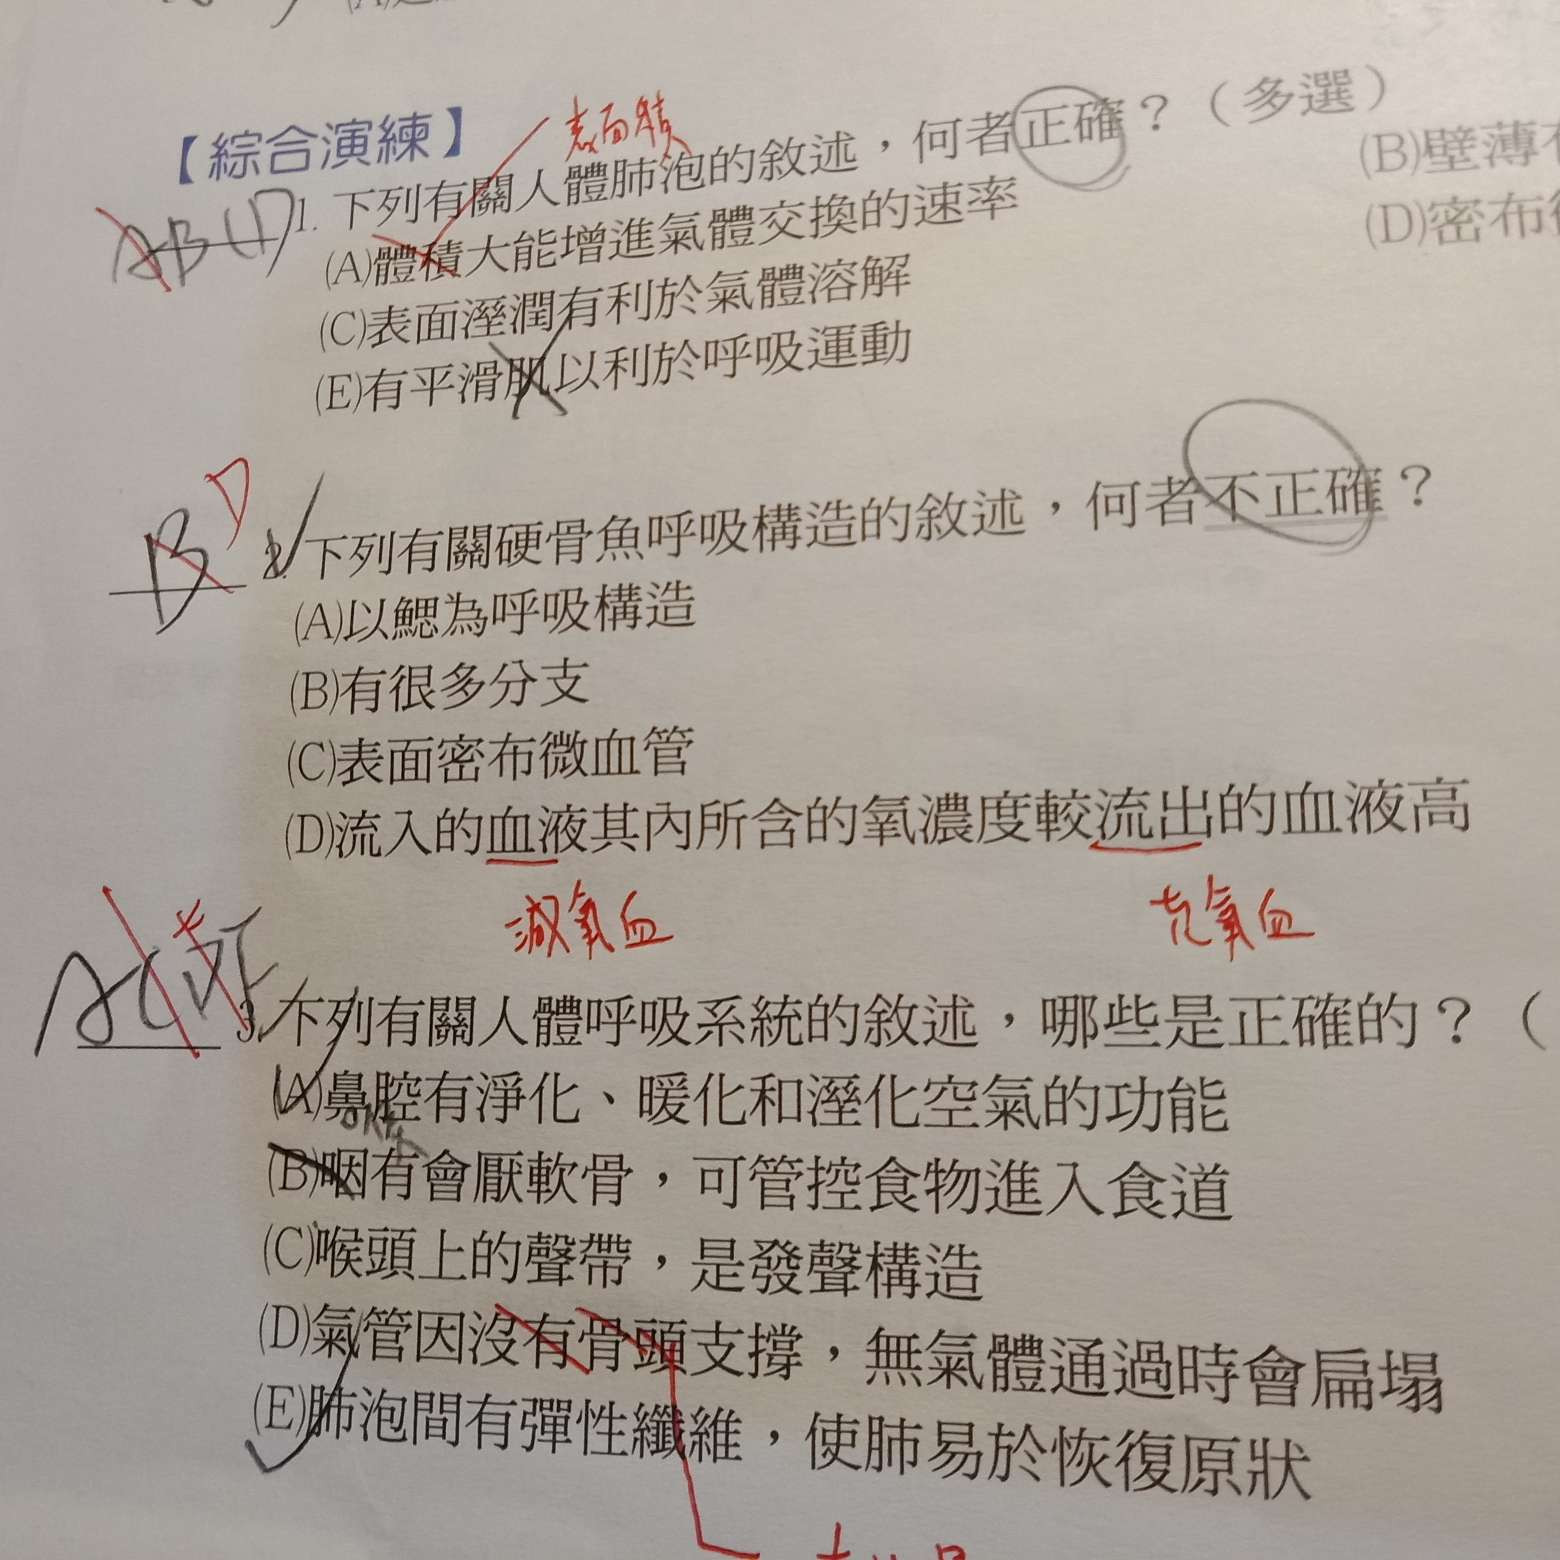 【綜合演練】
表面積
ABCD 1. 下列有關人體肺泡的敘述，何者正確？（多選）
(A)體積大能增進氣體交換的速率
(B)壁薄
(C)表面溼潤有利於氣體溶解
(D)密布
(E)有平滑肌以利於呼吸運動
B D 2. 下列有關硬骨魚呼吸構造的敘述，何者不正確？
(A)以鰓為呼吸構造
(B)有很多分支
(C)表面密布微血管
(D)流入的血液其內所含的氧濃度較流出的血液高
減氧血 充氧血
3. 下列有關人體呼吸系統的敘述，哪些是正確的？（
(A)鼻腔有淨化、暖化和溼化空氣的功能
(B)咽有會厭軟骨，可管控食物進入食道
(C)喉頭上的聲帶，是發聲構造
(D)氣管因沒有骨頭支撐，無氣體通過時會扁塌
(E)肺泡間有彈性纖維，使肺易於恢復原狀